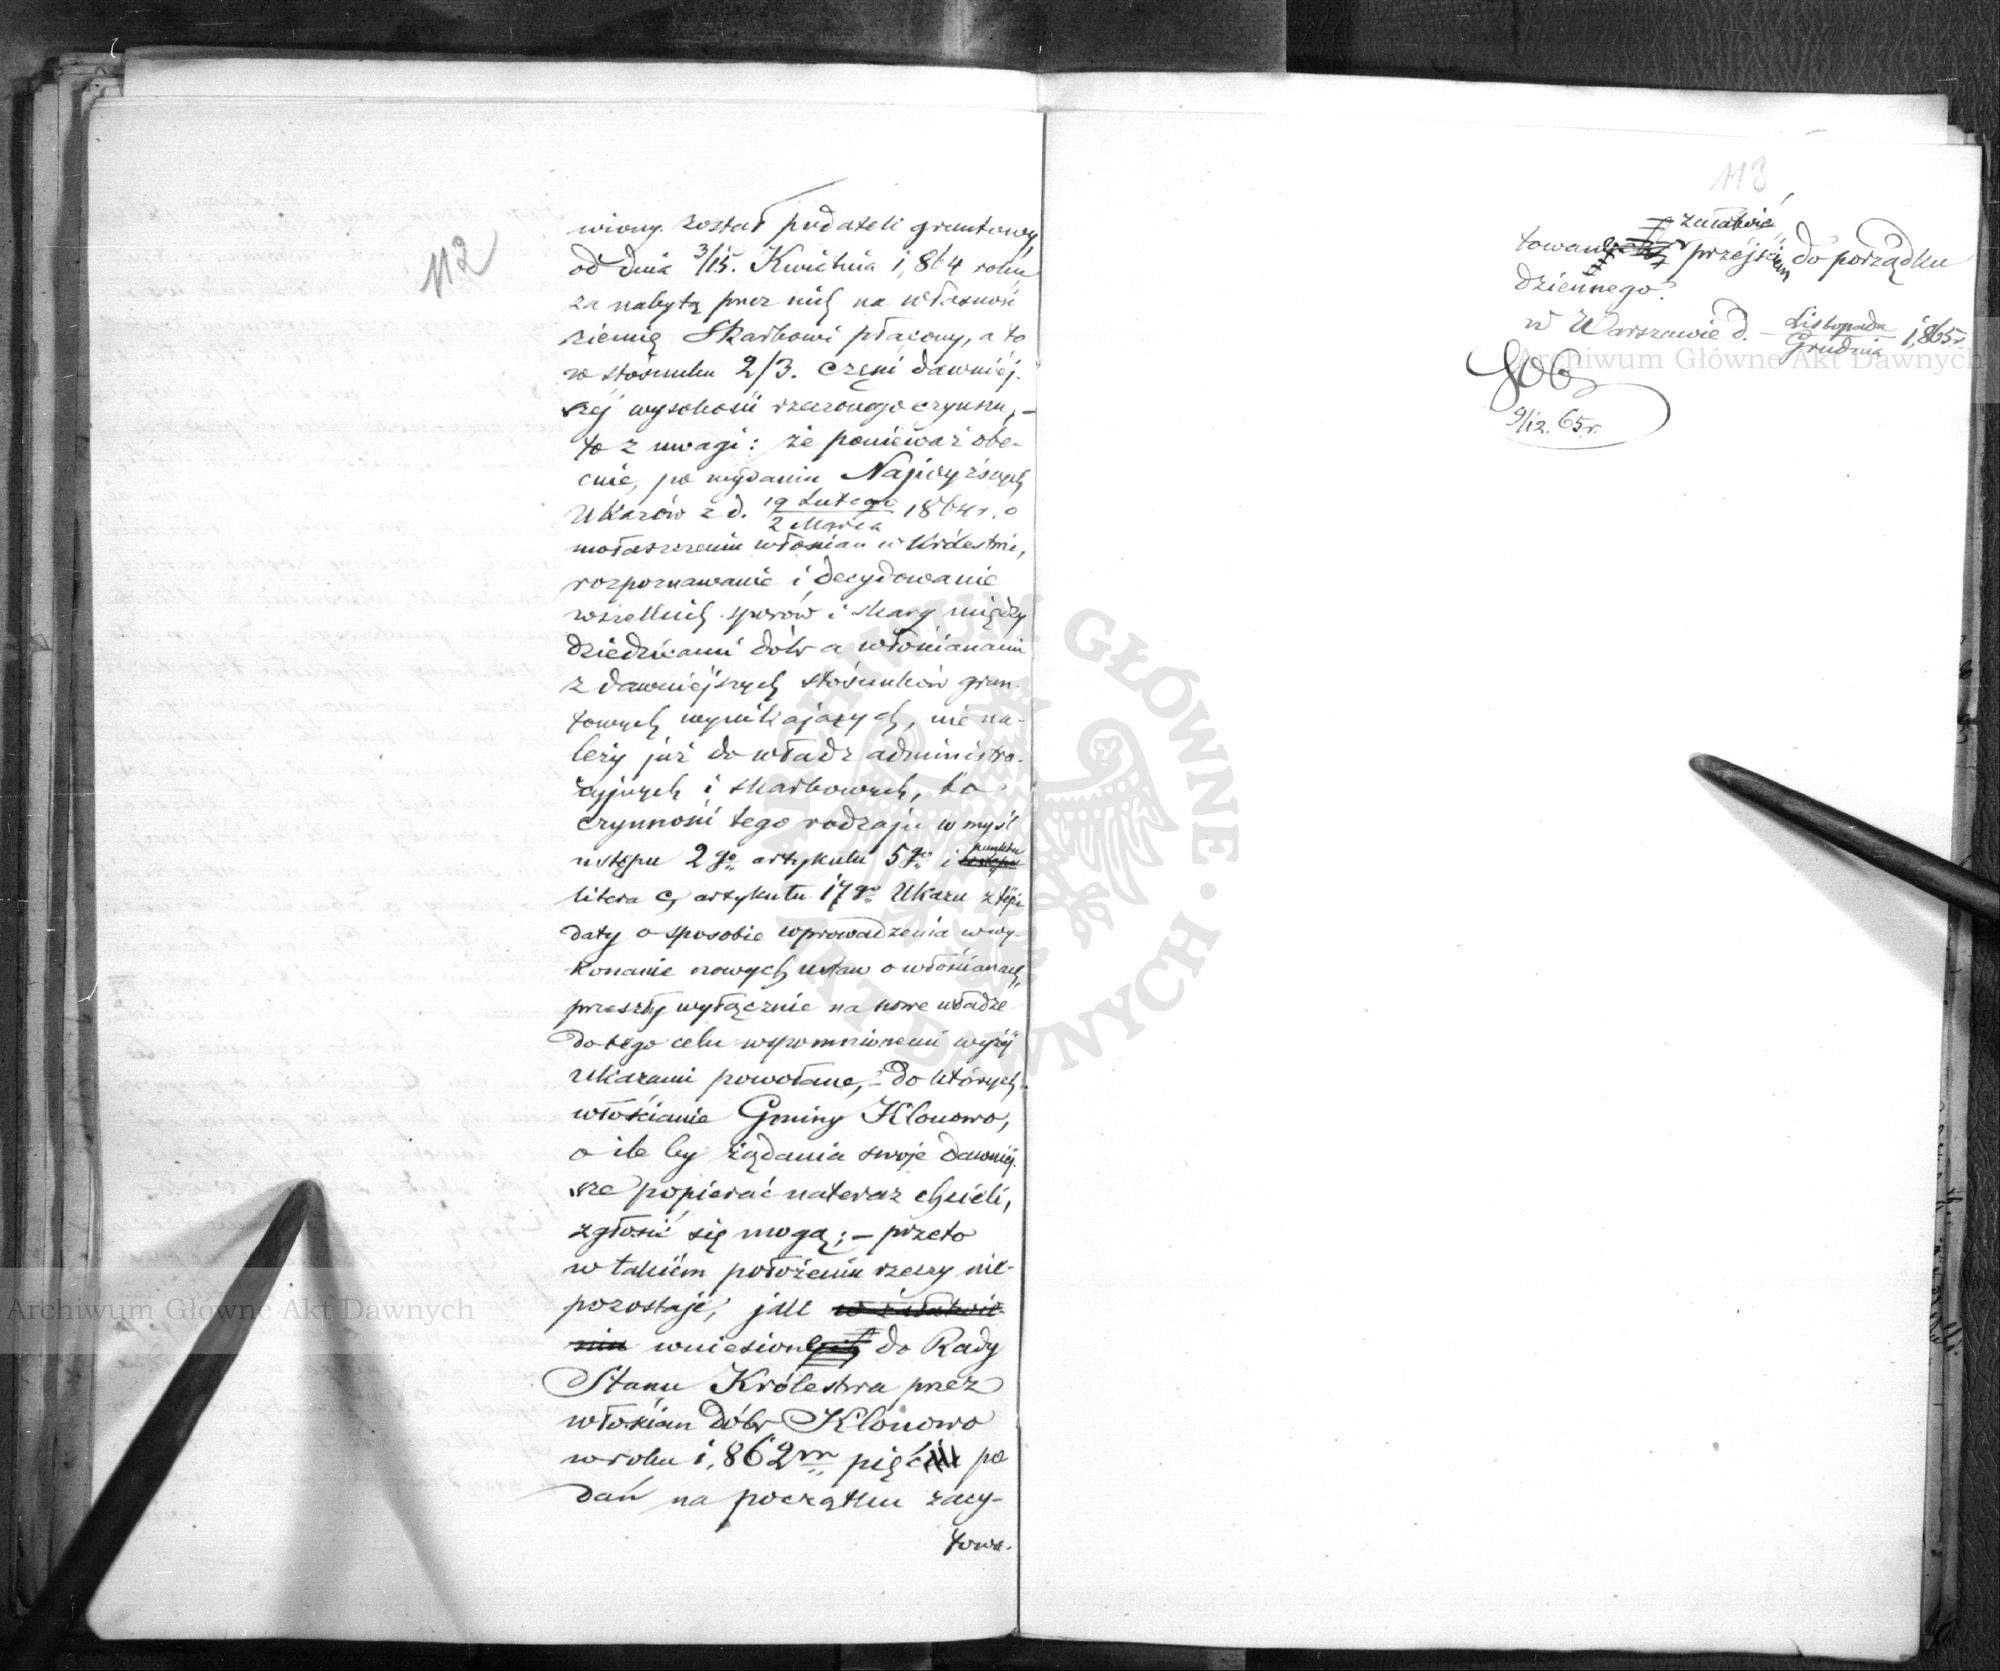 112
wiony został podatek gruntowy
od dnia 3/15. Kwietnia 1,864 roku
za nabytą przez nich na własność
ziemię Skarbowi płacony, a to
w stosunku 2/3. części dawniej-
szej wysokości rzeczonego czynszu, –
to z uwagi: że ponieważ obe-
cnie, po wydaniu Najwyższych
Ukazów z d. 19 Lutego/2 Marca 1864 r. o
włościan w Królestwie,
rozpoznawanie i decydowanie
wszelkich sporów i skarg między
dziedzicami dóbr a włościanami
z dawniejszych stosunków grun-
towych wynikających, nie na-
leży już do władz administra-
cyjnych i skarbowych, bo
czynności tego rodzaju w myśl
ustępu 2go artykułu 5go i punktu
litera c, artykułu 17go Ukazu z tejże
daty o sposobie wprowadzenia w wy-
konanie nowych ustaw o włościanach,
przeszły wyłącznie na nowe władze
do tego celu wspomnionemi wyżej
ukazami powołane, – do których
włościanie Gminy Klonowo,
o ile by żądania swoje dawniej-
sze popierać nateraz chcieli,
zgłosić się mogą; – przeto
w takiem położeniu rzeczy nie-
pozostaje, jak w załatwie-
niu wniesione do Rady
Stanu Królestwa przez
włościan dóbr Klonowo
w roku 1,862m pięć po
dań na początku zacy-
towa-
113
załatwić
towane przejściem do porządku
dziennego.
w Warszawie d. Listopada/Grudnia 1,865 r.
9/12. 65 r.
Archiwum Główne Akt Dawnych
Archiwum Główne Akt Dawnych
ARCHIWUM GŁÓWNE AKT DAWNYCH